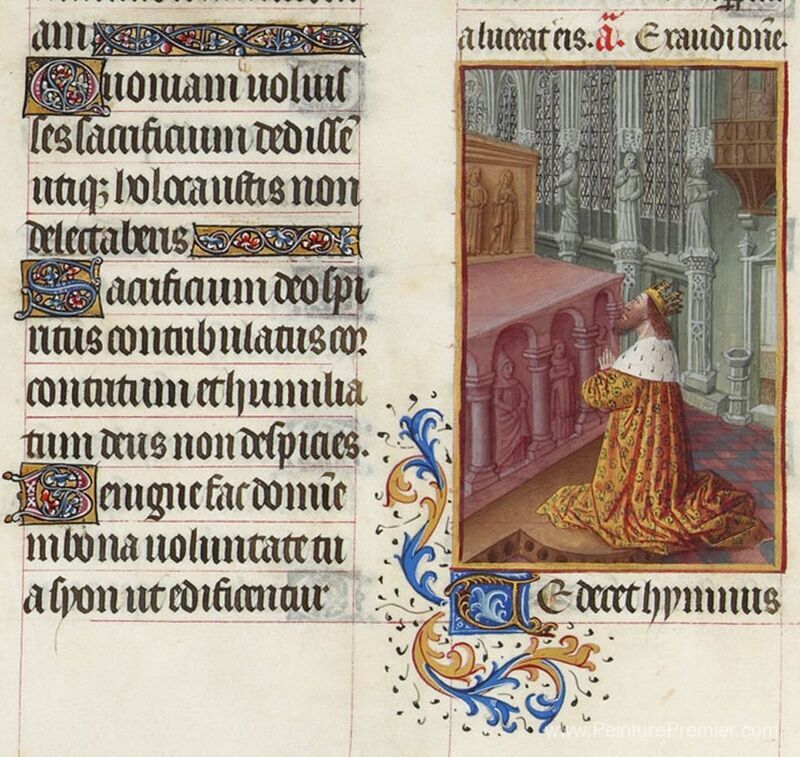 am
Quoniam voluis
ses sacrificium dedissē
utiq; holocaustis non
delectaberis
Sacrificium deo spi
ritus contribulatus cor
contritum et humilia
tum deus non despicies.
Benigne fac domine
in bona voluntate tu
a syon ut edificentur
a luceat eis. a. Exaudi dn̄e.
TE decet hymnus
www.PeinturePremier.com